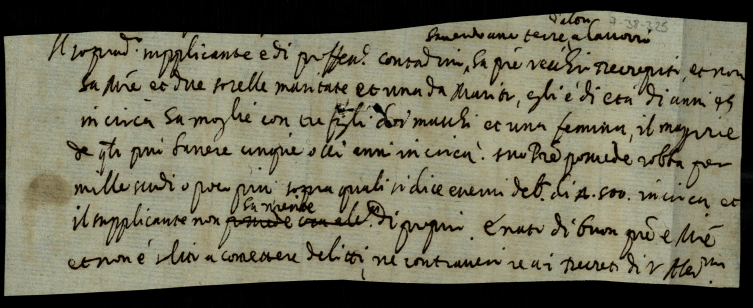 d'alon
7-38-325
tenendo una terre a lavorar
Il soprad.º supplicante è di profess.e contadini, ha pre vecchi decrepiti, et non
ha Mre et due sorelle maritate et una da Marito, egli è di età di anni 28
incirca ha moglie con tre figli doi maschi et una femina, il maggiore
de qli puol havere cinque o sei anni incirca. suo Pre possede robba per
mille scudi o poco più sopra quali si dice esservi deb.i di ₰. 500. incirca et
ha niente
il supplicante non possede di proprio. È nato di buon pre e Mre
et non è solito a comettere delitti, ne contravenire ai Decreti di V. Alt.